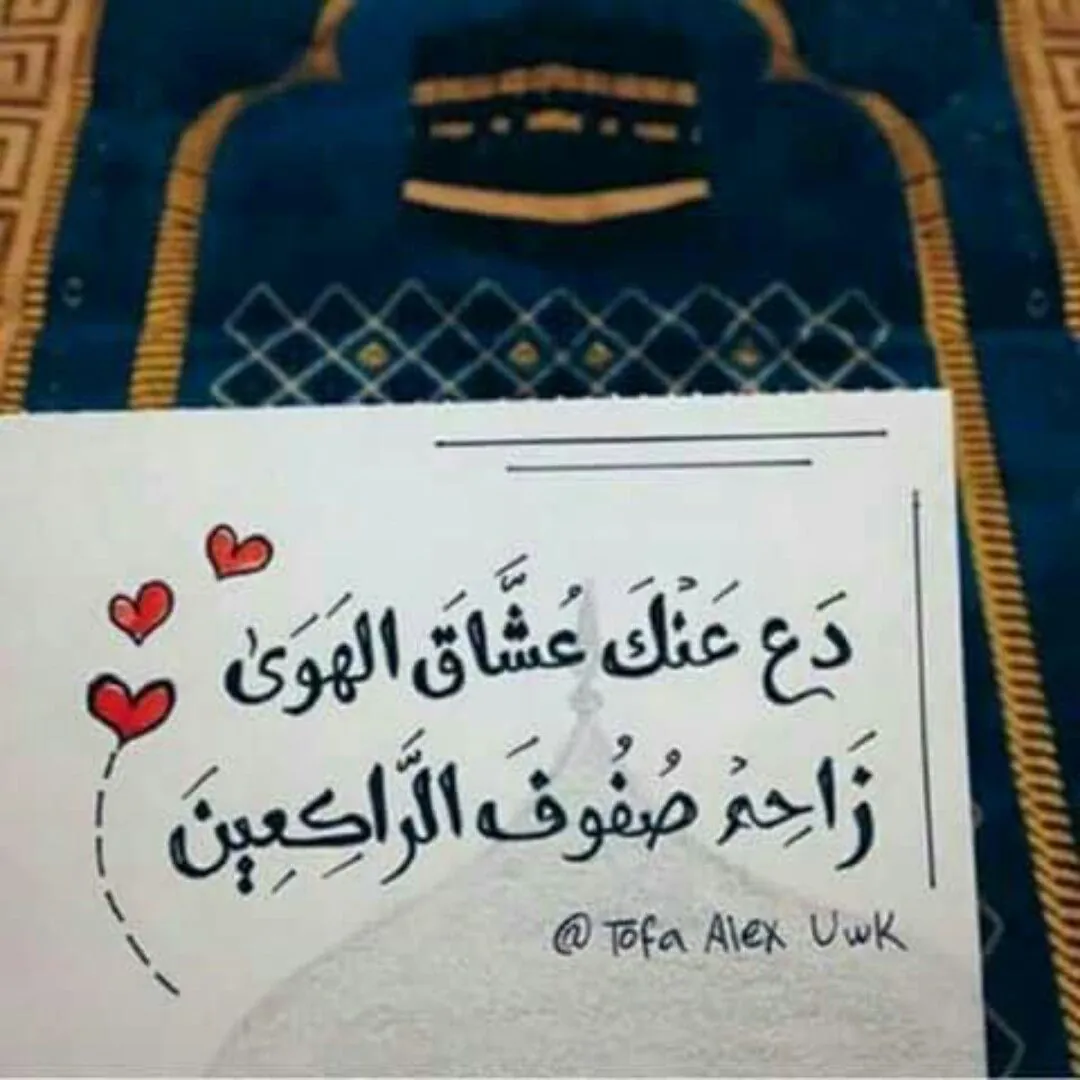 دَع عَنْكَ عُشَّاقَ الهَوَىٰ
زَاحِمْ صُفُوفَ الرَّاكِعِينَ
@Tofa Alex UwK